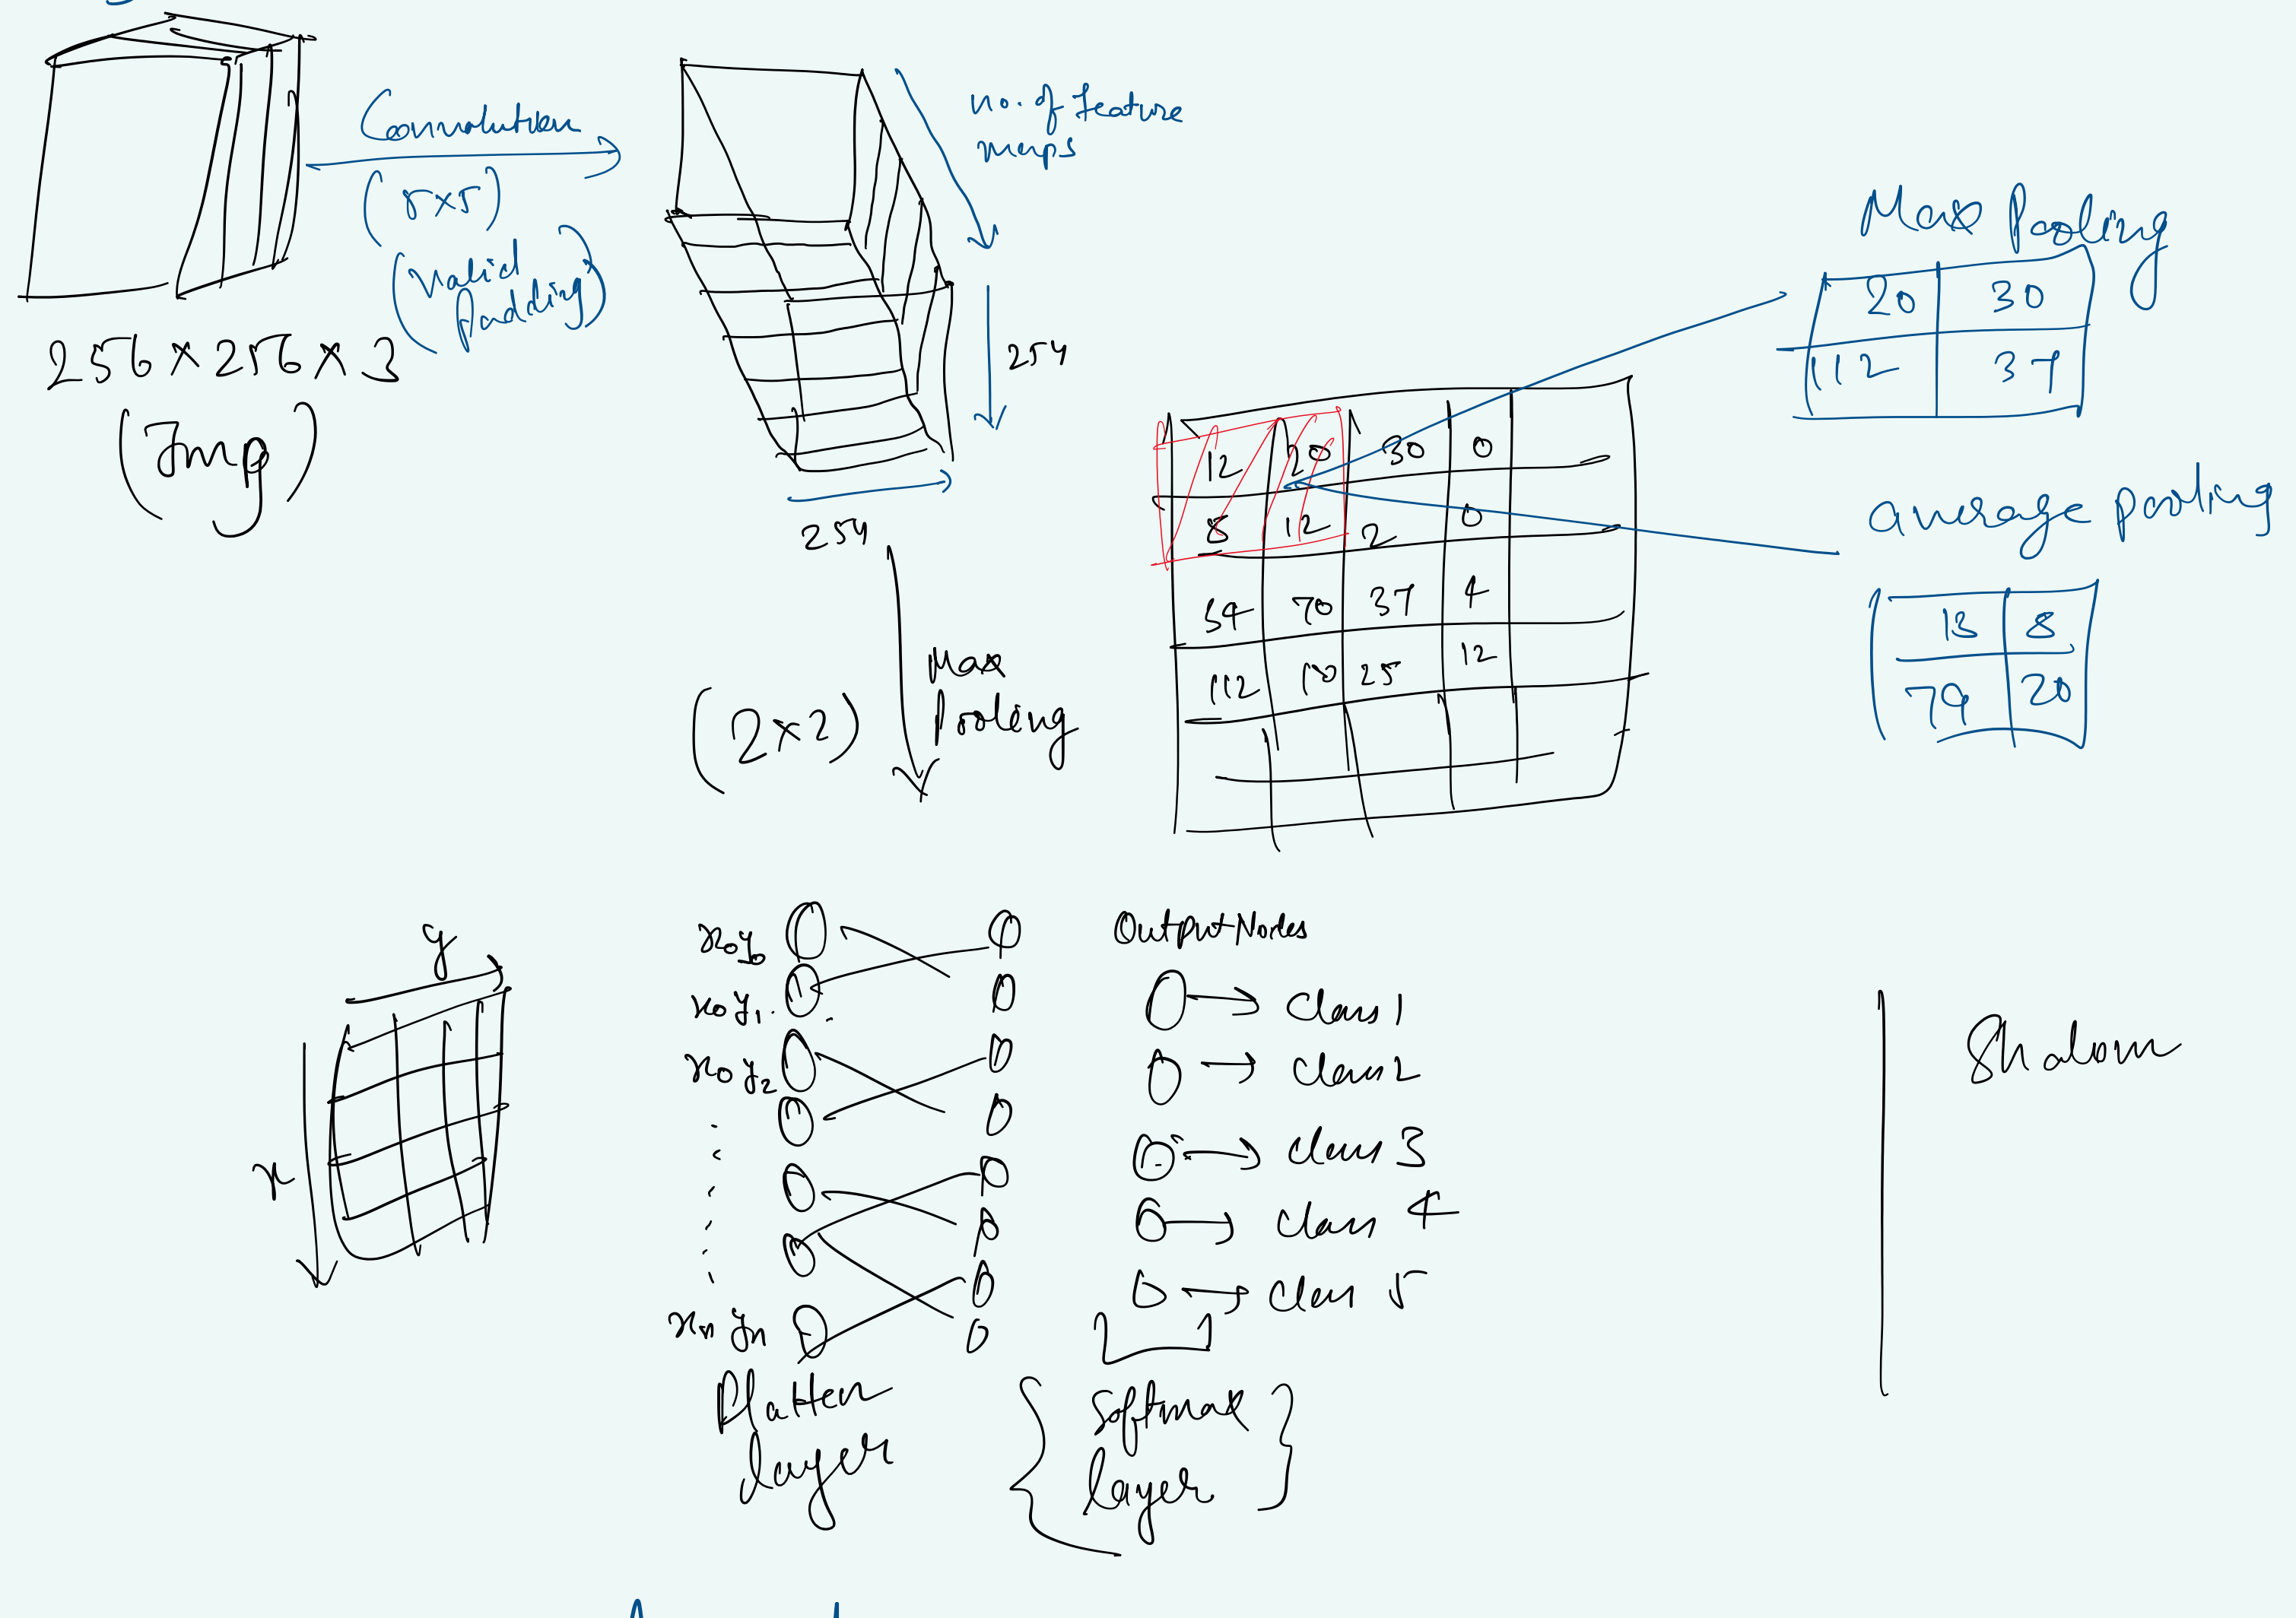 Convolution
(5×5)
(Valid
Padding)
256×256×3
(Img)
no. of feature
maps
254
254
(2×2)
Max
Pooling
12 20 30 0
8 12 2 0
34 70 37 4
112 100 25 12
Max Pooling
20 30
112 37
average pooling
13 8
79 20
y
x
x0y0
x0y1
x0y2
xnyn
Flatten
layer
Output Nodes
Class 1
Class 2
Class 3
Class 4
Class 5
Softmax
layer
Shalom